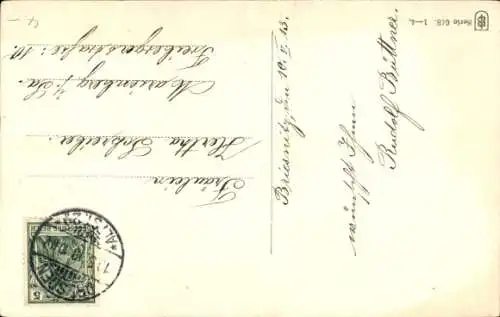 Serie 618. 1-4.
Briesnitz, den 10. V. 13.
wünscht Ihnen
Rudolf Büttner.
Fräulein
Hertha Schreiber.
Marienberg i. Sa.
Freibergerstraße: 10.
DRESDEN
5